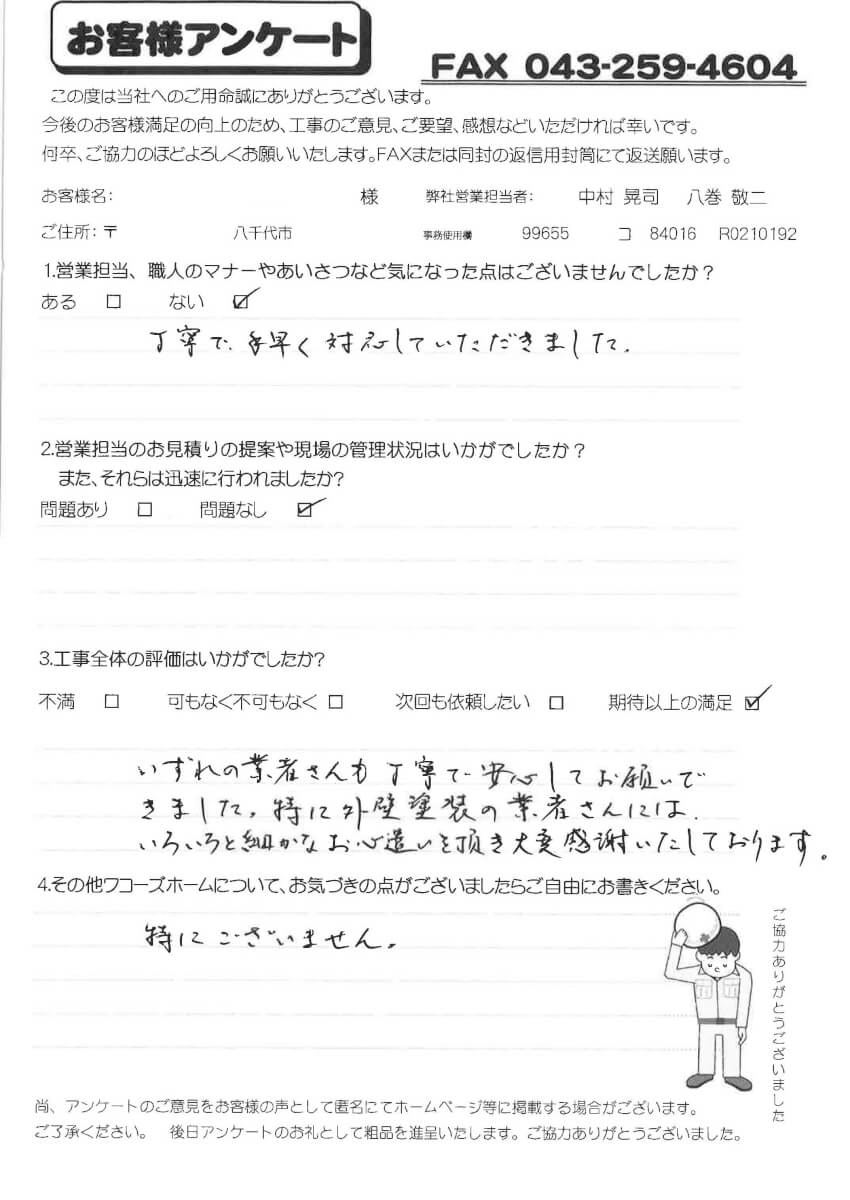 お客様アンケート
FAX 043-259-4604
この度は当社へのご用命誠にありがとうございます。
今後のお客様満足の向上のため、工事のご意見、ご要望、感想などいただければ幸いです。
何卒、ご協力のほどよろしくお願いいたします。FAXまたは同封の返信用封筒にて返送願います。
お客様名: 様 弊社営業担当者: 中村 晃司 八巻 敬二
ご住所:〒 八千代市 事務使用欄 99655 コ 84016 R0210192
1.営業担当、職人のマナーやあいさつなど気になった点はございませんでしたか?
ある □ ない ☑
丁寧で、手早く対応していただきました。
2.営業担当のお見積りの提案や現場の管理状況はいかがでしたか?
また、それらは迅速に行われましたか?
問題あり □ 問題なし ☑
3.工事全体の評価はいかがでしたか?
不満 □ 可もなく不可もなく □ 次回も依頼したい □ 期待以上の満足 ☑
いずれの業者さんも丁寧で安心してお願いで
きました。特に外壁塗装の業者さんには、
いろいろと細かなお心遣いを頂き大変感謝いたしております。
4.その他ワコーズホームについて、お気づきの点がございましたらご自由にお書きください。
特にございません。
ご協力ありがとうございました
尚、アンケートのご意見をお客様の声として匿名にてホームページ等に掲載する場合がございます。
ご了承ください。 後日アンケートのお礼として粗品を進呈いたします。ご協力ありがとうございました。